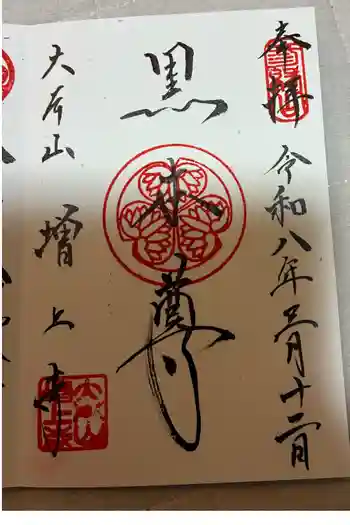 奉拝
令和八年
月十二日
黒本尊
大本山
増上寺